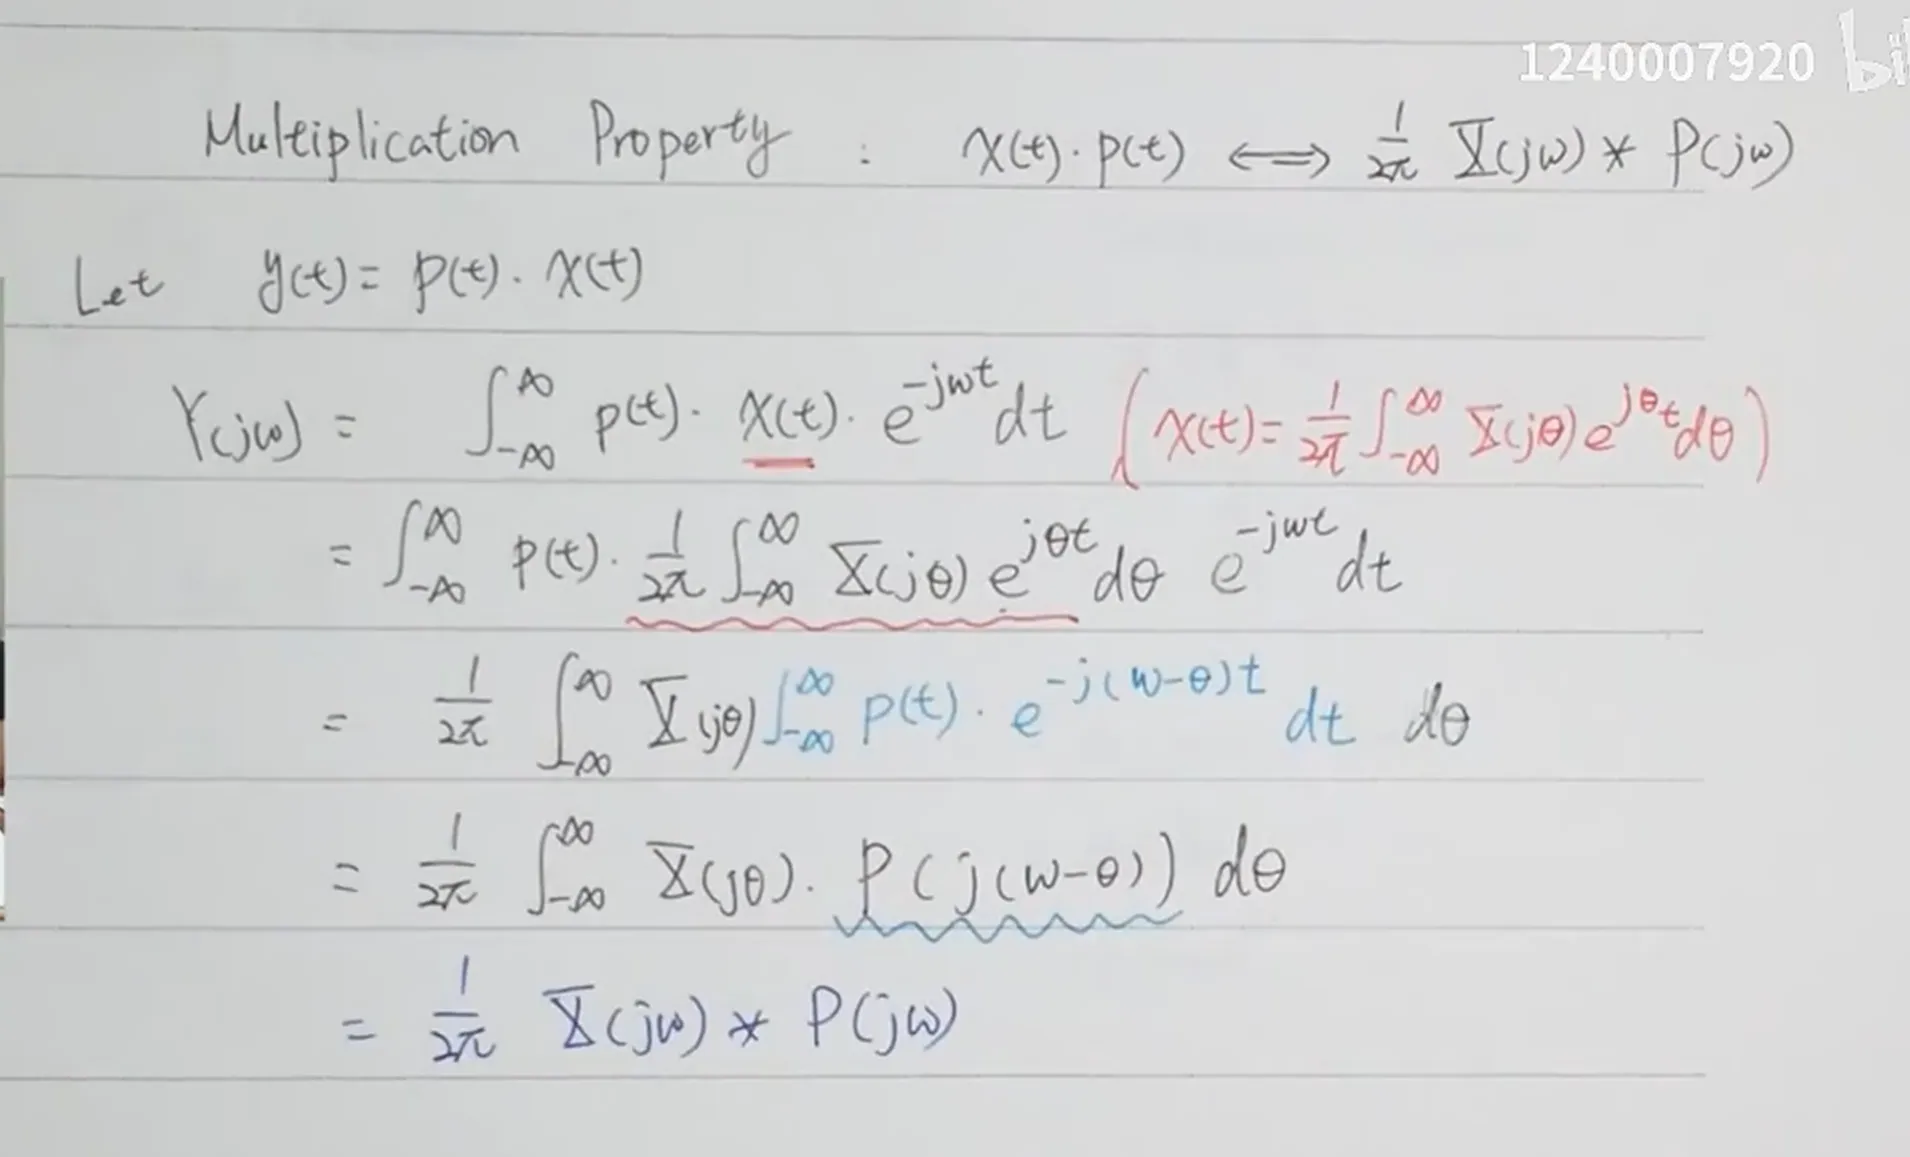 1240007920 bil
Multiplication Property : x(t)·p(t) ⟺ 1/2π X(jω) * P(jω)
Let y(t) = p(t)·x(t)
Y(jω) = ∫_{-∞}^{∞} p(t)·x(t)·e^{-jωt} dt (x(t) = 1/2π ∫_{-∞}^{∞} X(jθ) e^{jθt} dθ)
= ∫_{-∞}^{∞} p(t)·1/2π ∫_{-∞}^{∞} X(jθ) e^{jθt} dθ e^{-jωt} dt
= 1/2π ∫_{-∞}^{∞} X(jθ) ∫_{-∞}^{∞} p(t)·e^{-j(ω-θ)t} dt dθ
= 1/2π ∫_{-∞}^{∞} X(jθ)·P(j(ω-θ)) dθ
= 1/2π X(jω) * P(jω)